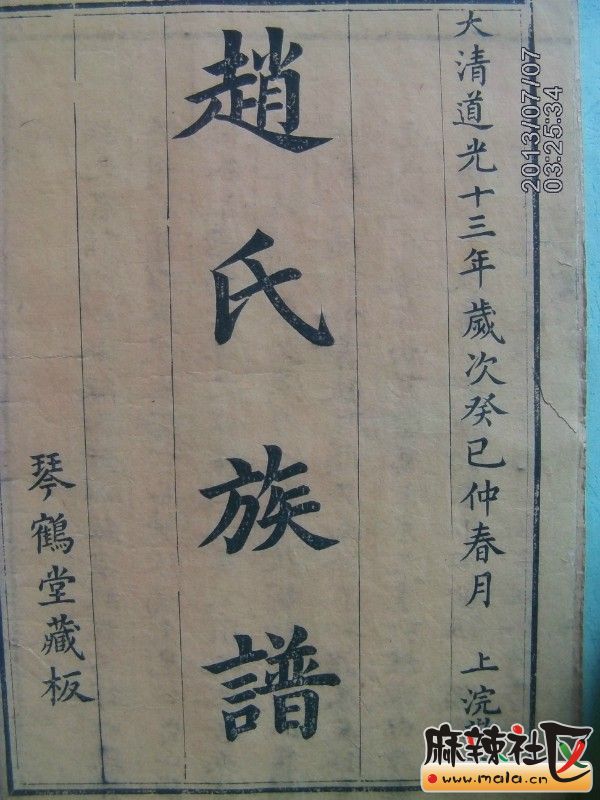 大清道光十三年歲次癸巳仲春月 上浣
趙氏族譜
琴鶴堂藏板
2013/07/07
03:25:34
麻辣社区
www.mala.cn